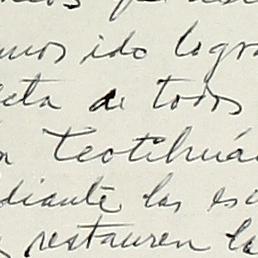 mos ido logra
leta de todos
Teotihuá
diante las es
restauren la